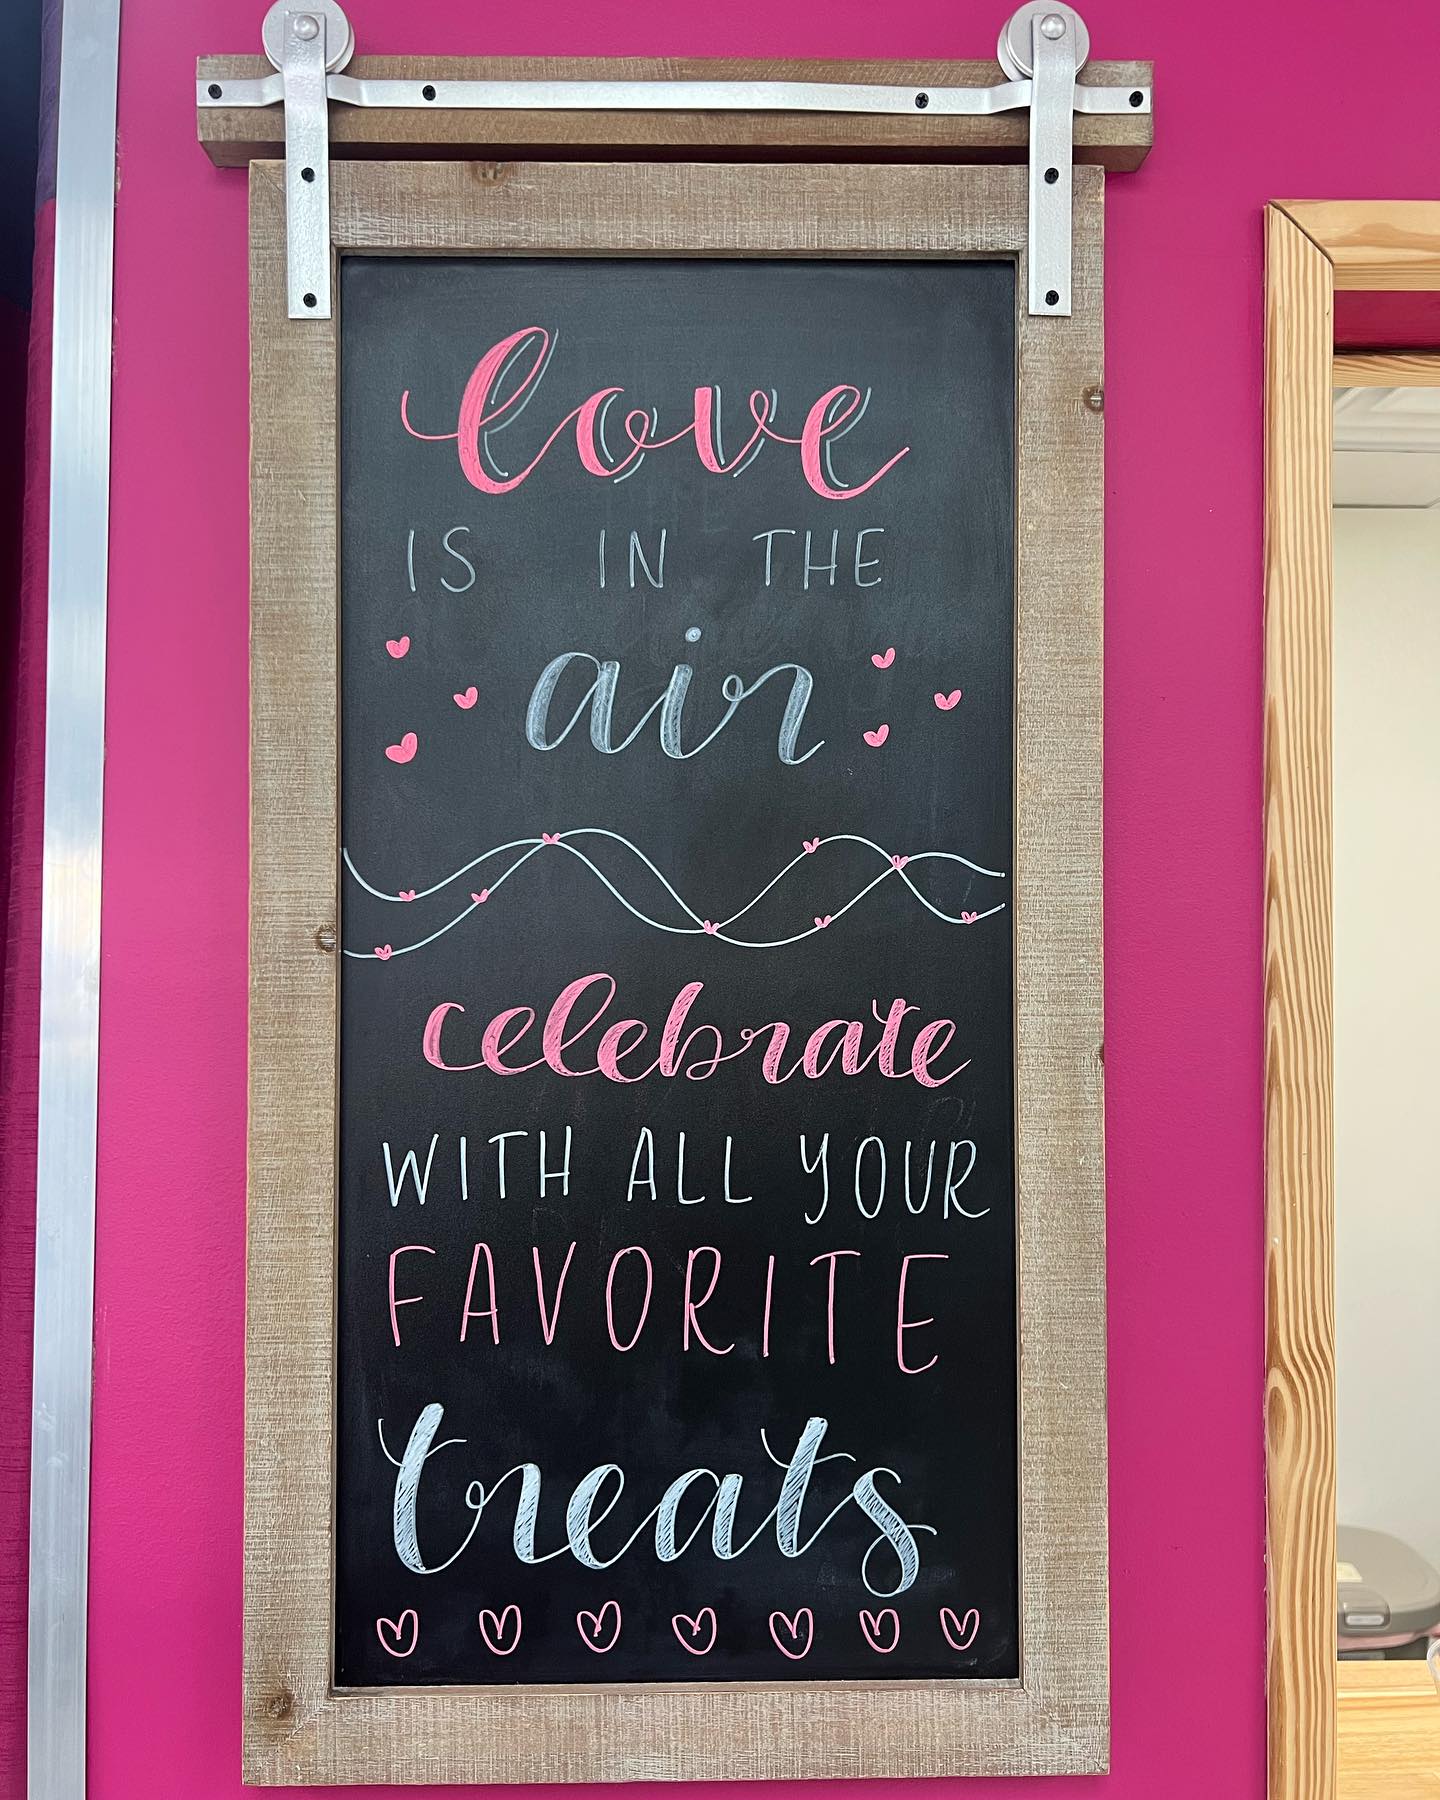 love
IS IN THE
air
celebrate
WITH ALL YOUR
FAVORITE
treats